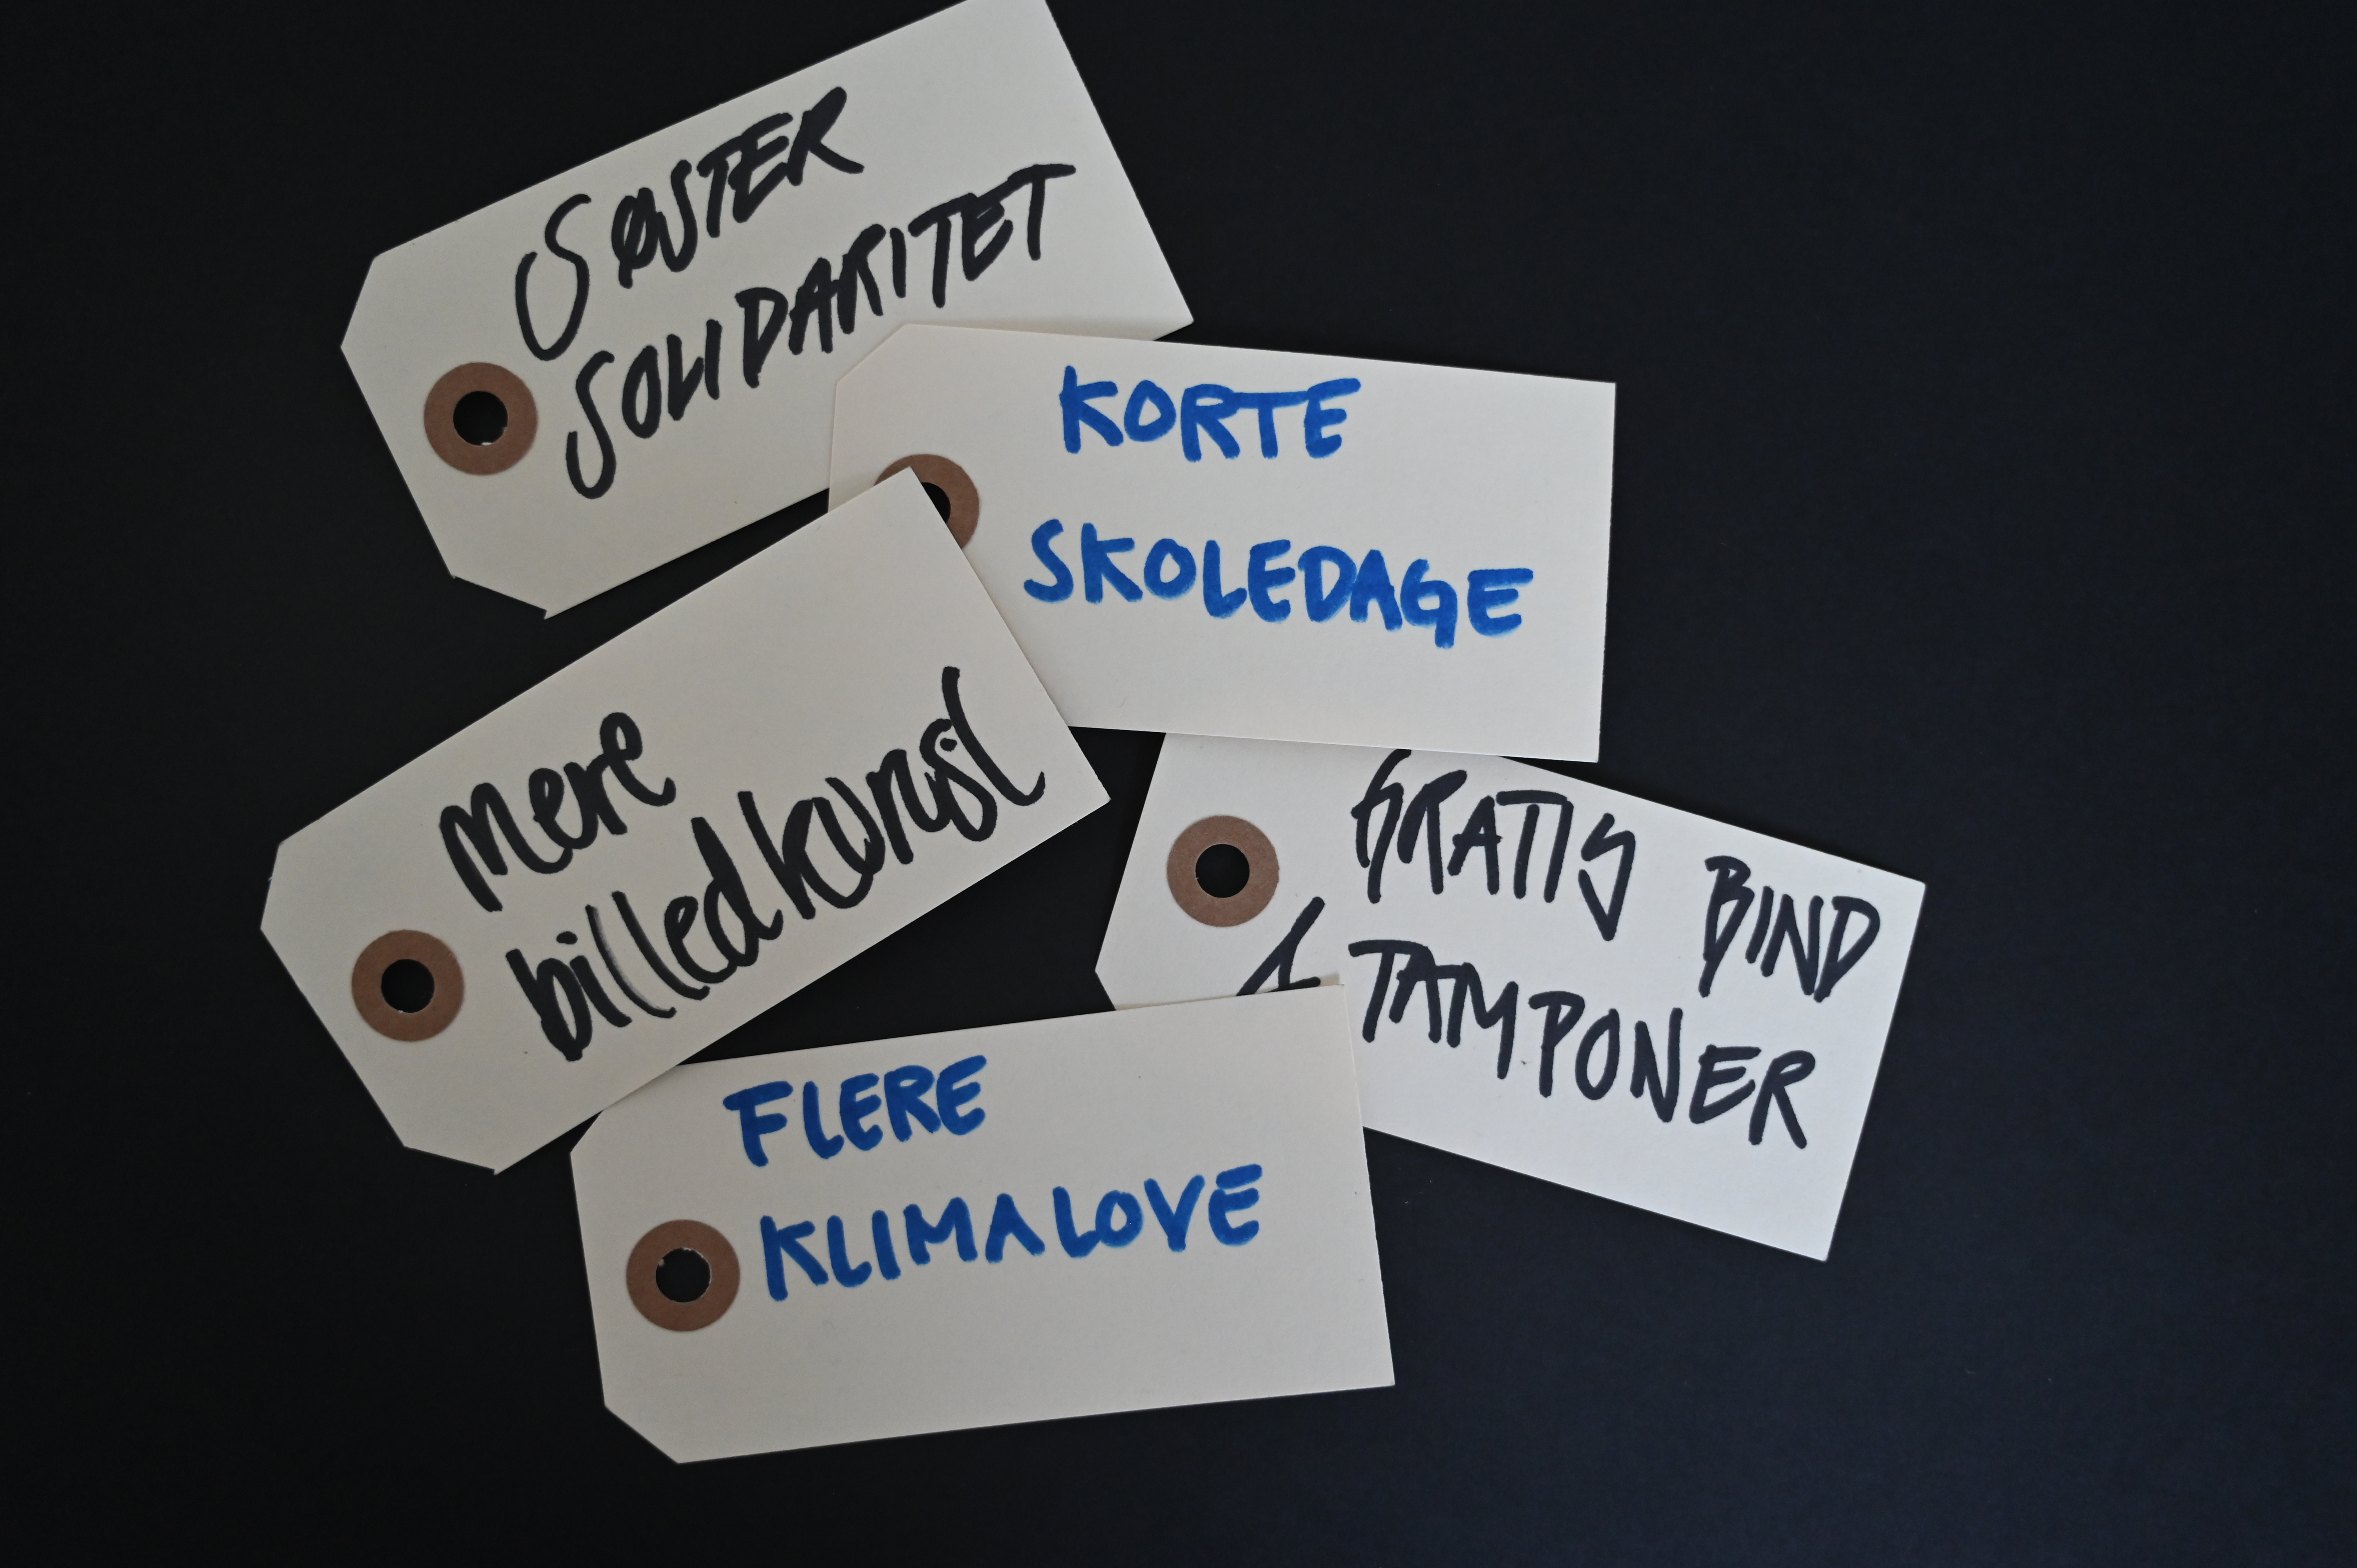 SØSTER
SOLIDARITET
KORTE
SKOLEDAGE
mere
billedkunst
GRATIS BIND
& TAMPONER
FLERE
KLIMALOVE